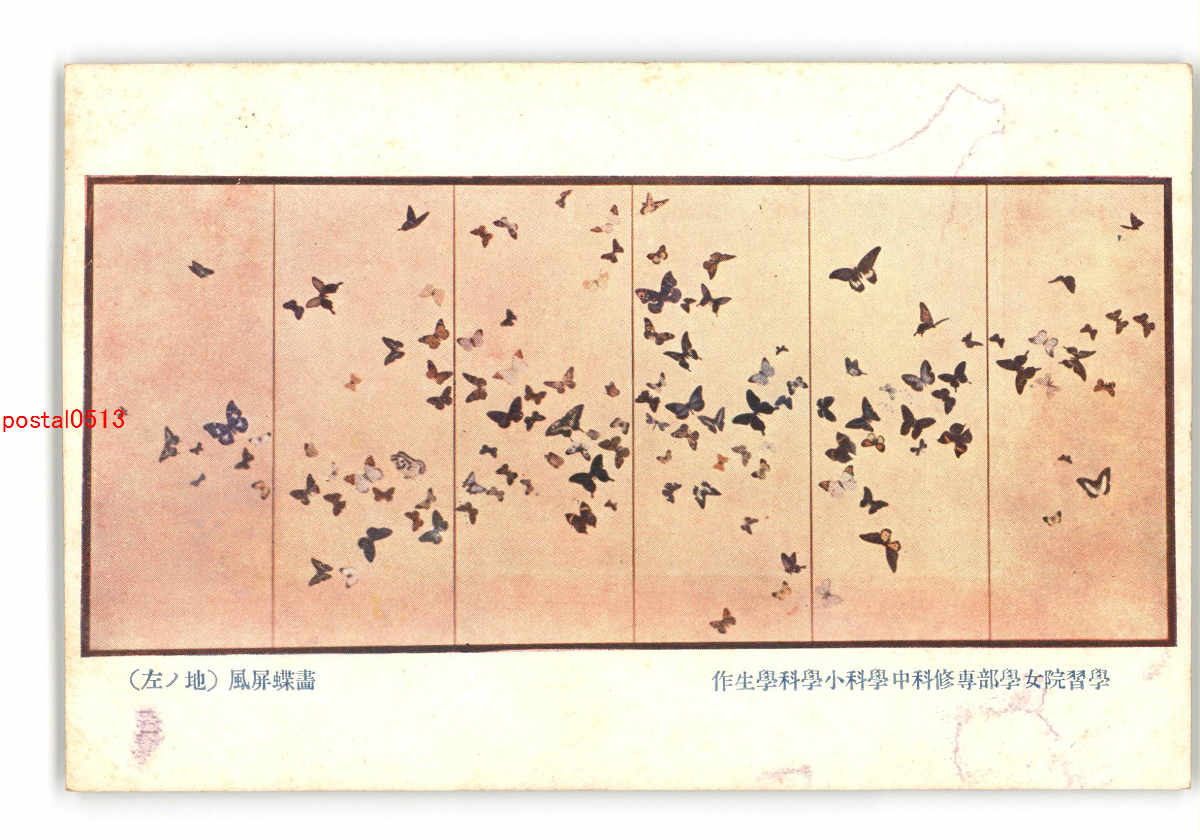 postal0513
學習院女學部専修科中學科小學科學生作
畵蝶屏風（地ノ左）